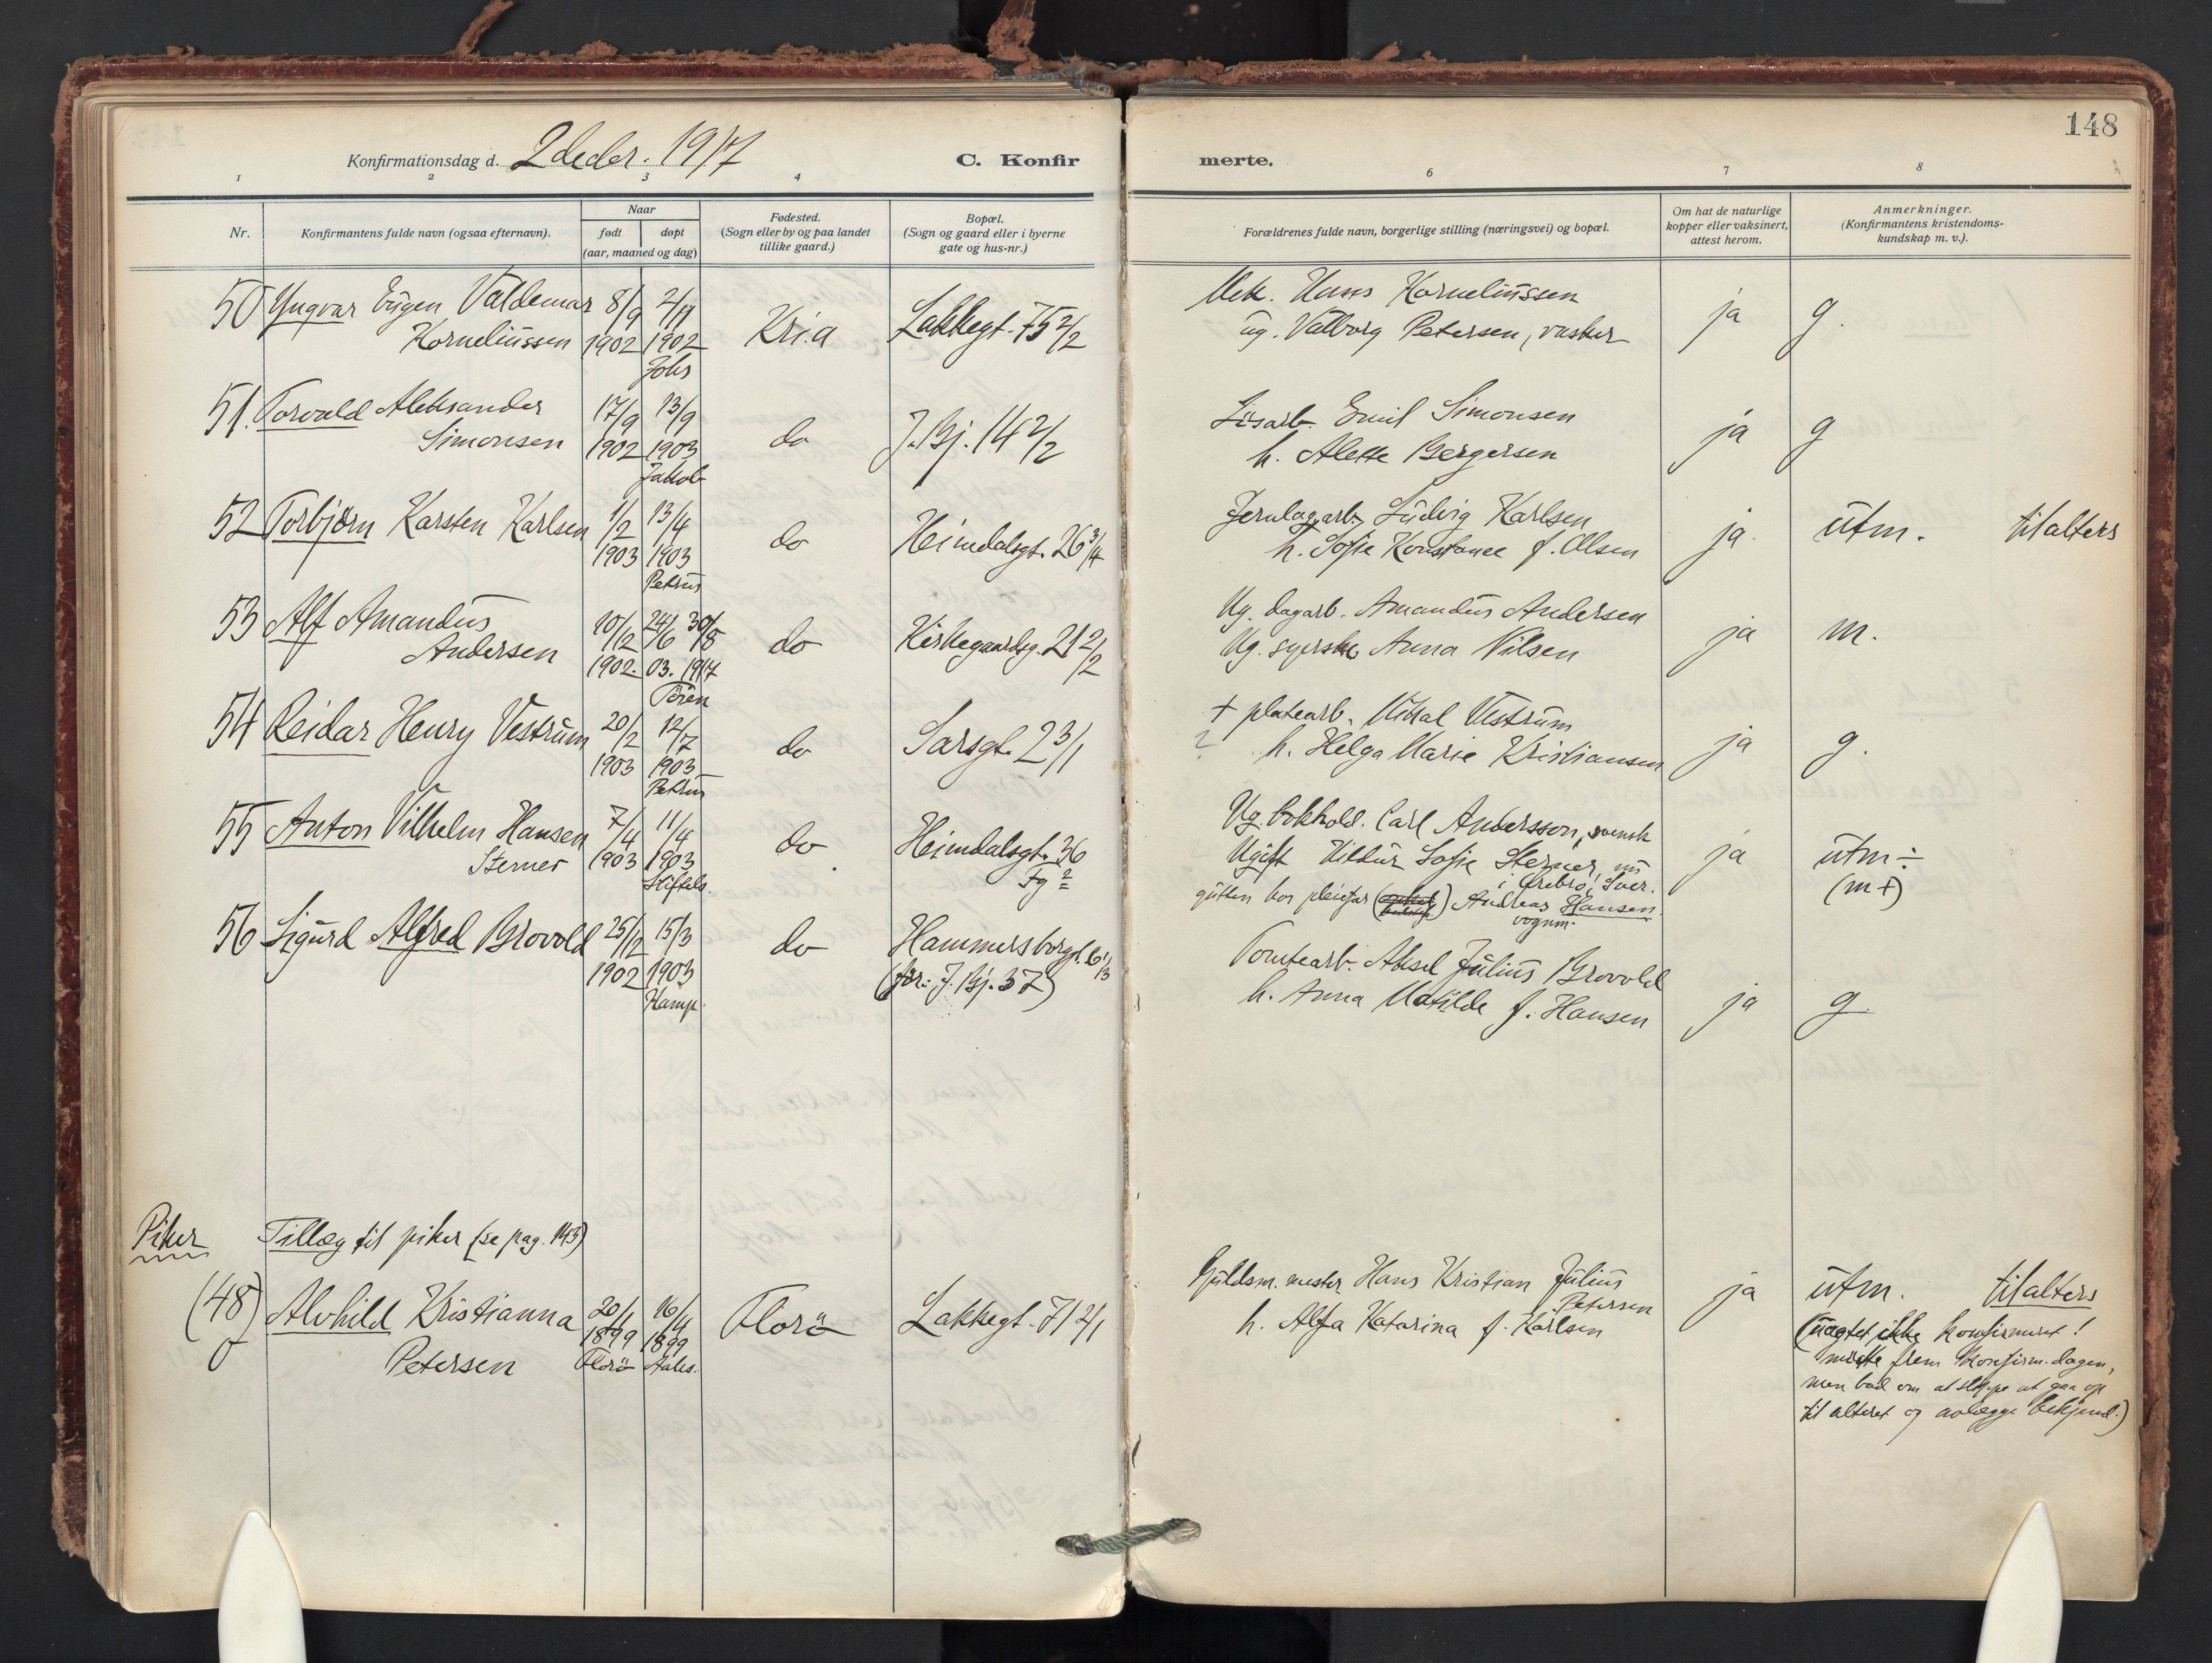 148
Konfirmationsdag d. 2 decbr. 1917
C. Konfir
merte.
1 2 3 4 6 7 8
Nr.
Konfirmantens fulde navn (ogsaa efternavn).
Naar
født døpt
(aar, maaned og dag)
Fødested.
(Sogn eller by og paa landet
tillike gaard.)
Bopæl.
(Sogn og gaard eller i byerne
gate og hus-nr.)
Forældrenes fulde navn, borgerlige stilling (næringsvei) og bopæl.
Om hat de naturlige
kopper eller vaksinert,
attest herom.
Anmerkninger.
(Konfirmantens kristendoms-
kundskap m. v.).
50 Yngvar Eugen Valdemar 8/9 2/11 Kri.a Lakkegt. 75 2/2 Mek. Hans Korneliussen ja g.
Korneliussen 1902 1902 ug. Valborg Petersen, vasker
Johs
51. Torvald Aleksander 17/9 13/9 do J. Bj. 14 2/2 Lisarb. Emil Simonsen ja g
Simonsen 1902 1903 h. Alette Bergersen
Jakob
52 Torbjørn Karsten Karlsen 1/2 13/4 do Heimdalsgt. 26 3/4 Jernlagarb. Ludvig Karlsen ja. utm. til alters
1903 1903 h. Sofie Konstance f. Olsen
Petrus
53 Alf Amandus 10/12 24/6 30/8 do Kirkegaardsg. 21 2/2 Ug. dagarb. Amandus Andersen ja m.
Andersen 1902. 03. 1917 Ug. syerske Anna Nilsen
54 Reidar Henry Vestrum 20/2 12/7 do Sarsgt. 2 3/1 + platearb. Mikal Vestrum ja g.
1903 1903 h. Helga Marie Kristiansen
Petrus
55 Anton Vilhelm Hansen 7/4 11/4 do Heimdalsgt. 36 Ug. bokhold. Carl Andersson, svensk ja utm ÷
Sterner 1903 1903 Fg 2 Ugift Hildur Sofie Sterner, nu (m+)
Stiftels. i Ørebro, Sver.
gutten hos pleiefar Andreas Hansen
vognm.
56 Sigurd Alfred Brovold 25/12 15/3 do Hammersborgt. 6 1/3 Tomtearb. Aksel Julius Brovold ja g.
1902 1903 (før: J. Bj. 37) h. Anna Matilde f. Hansen
Kamp.
Piker Tillæg til piker (se pag. 143)
(48) Alvhild Kristianna 20/1 16/4 Florø Lakkegt. 71 2/1 Guldsm. mester Hans Kristian Julius ja utm. til alters
Petersen 1899 1899 Petersen
Florø Aales. h. Alfa Katarina f. Karlsen
(uagtet ikke konfirmeret!
møtte frem konfirm. dagen,
men bad om at slippe at gaa op
til alteret og avlægge bekjend.)